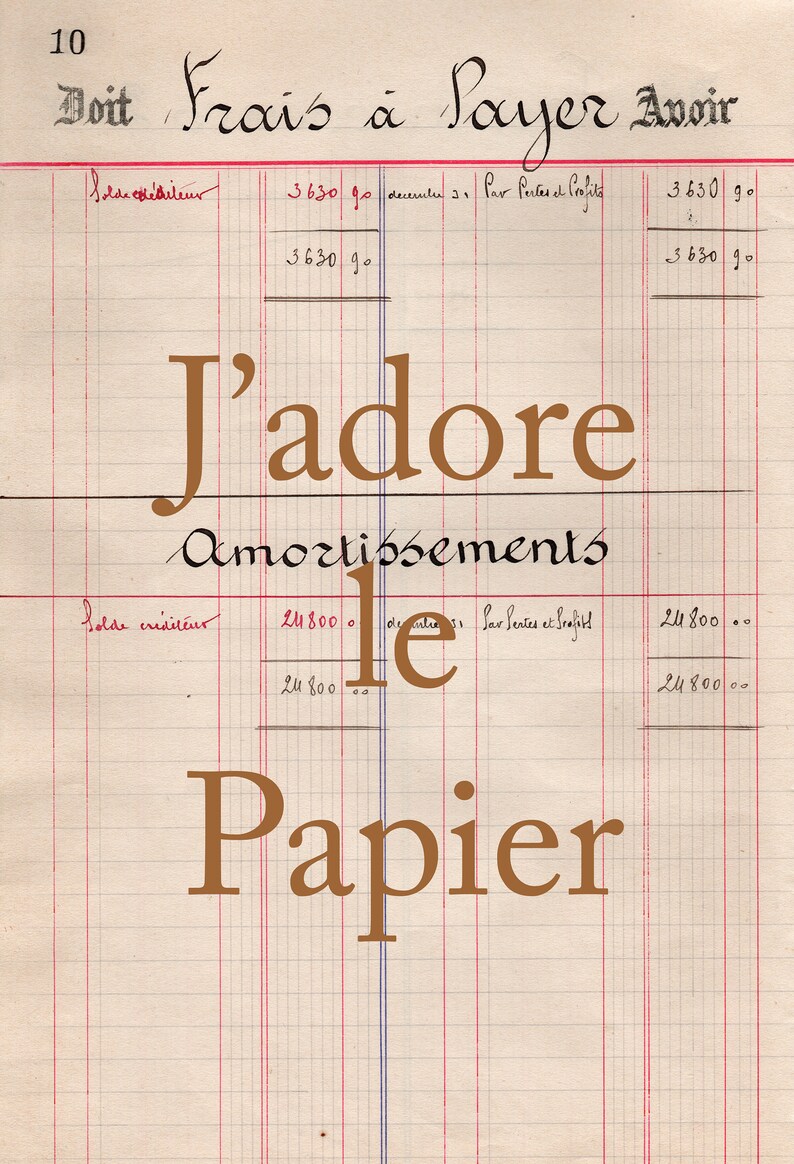 10
Doit Frais à Payer Avoir
Solde créditeur 3630 90 decembre 31 Par Pertes et Profits 3630 90
3630 90 3630 90
J'adore
Amortissements
le
Solde créditeur 24800 00 decembre 31 Par Pertes et Profits 24800 00
24800 00 24800 00
Papier